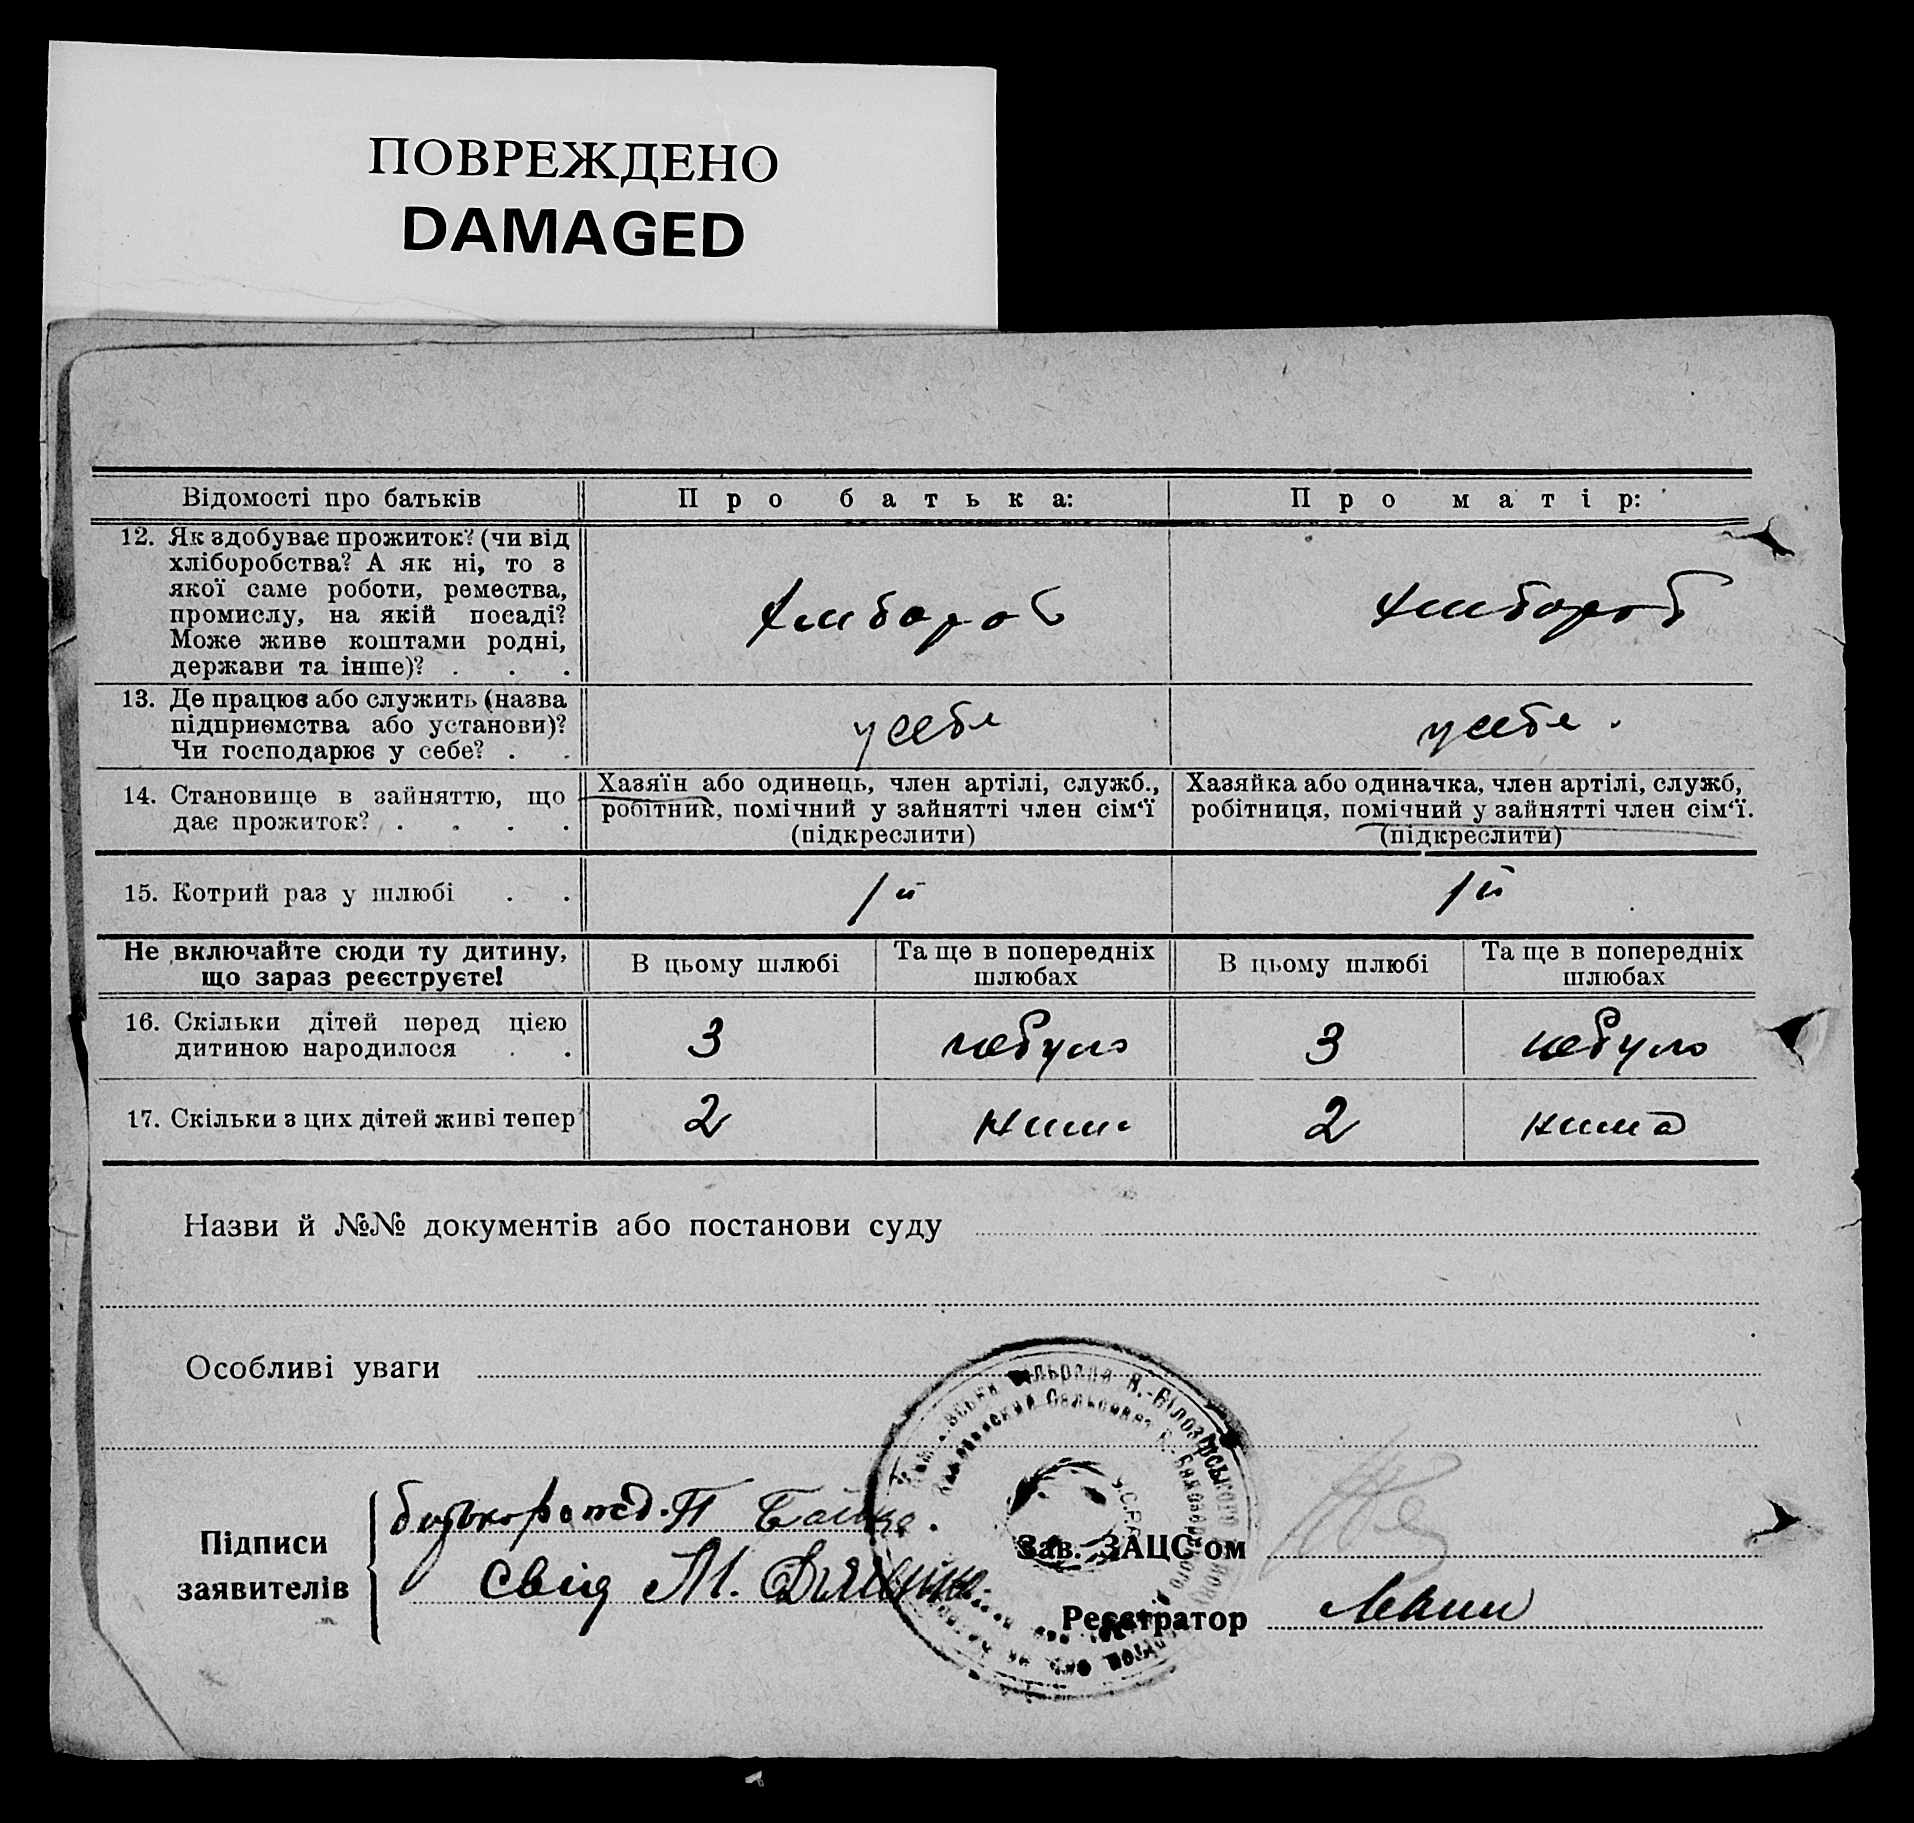 ПОВРЕЖДЕНО
DAMAGED
Відомості про батьків
Про батька:
Про матір:
12. Як здобуває прожиток? (чи від
хліборобства? А як ні, то з
якої саме роботи, ремества,
промислу, на якій посаді?
Може живе коштами родні,
держави та інше)? . . .
хлибороб
хлибороб
13. Де працює або служить (назва
підприємства або установи)?
Чи господарює у себе? . .
у себе
у себе .
14. Становище в зайняттю, що
дає прожиток? . . . .
Хазяїн або одинець, член артілі, служб.,
робітник, помічний у зайнятті член сім‘ї
(підкреслити)
Хазяйка або одиначка, член артілі, служб,
робітниця, помічний у зайнятті член сім‘ї.
(підкреслити)
15. Котрий раз у шлюбі . .
1й
1й
Не включайте сюди ту дитину,
що зараз реєструєте!
В цьому шлюбі
Та ще в попередніх
шлюбах
В цьому шлюбі
Та ще в попередніх
шлюбах
16. Скільки дітей перед цією
дитиною народилося . .
3
небуло
3
небуло
17. Скільки з цих дітей живі тепер
2
нима
2
нима
Назви й №№ документів або постанови суду
Особливі уваги
Підписи
заявителів
П
свід М.
Зав. ЗАЦС‘ом
Реєстратор
У.С.Р.Р.